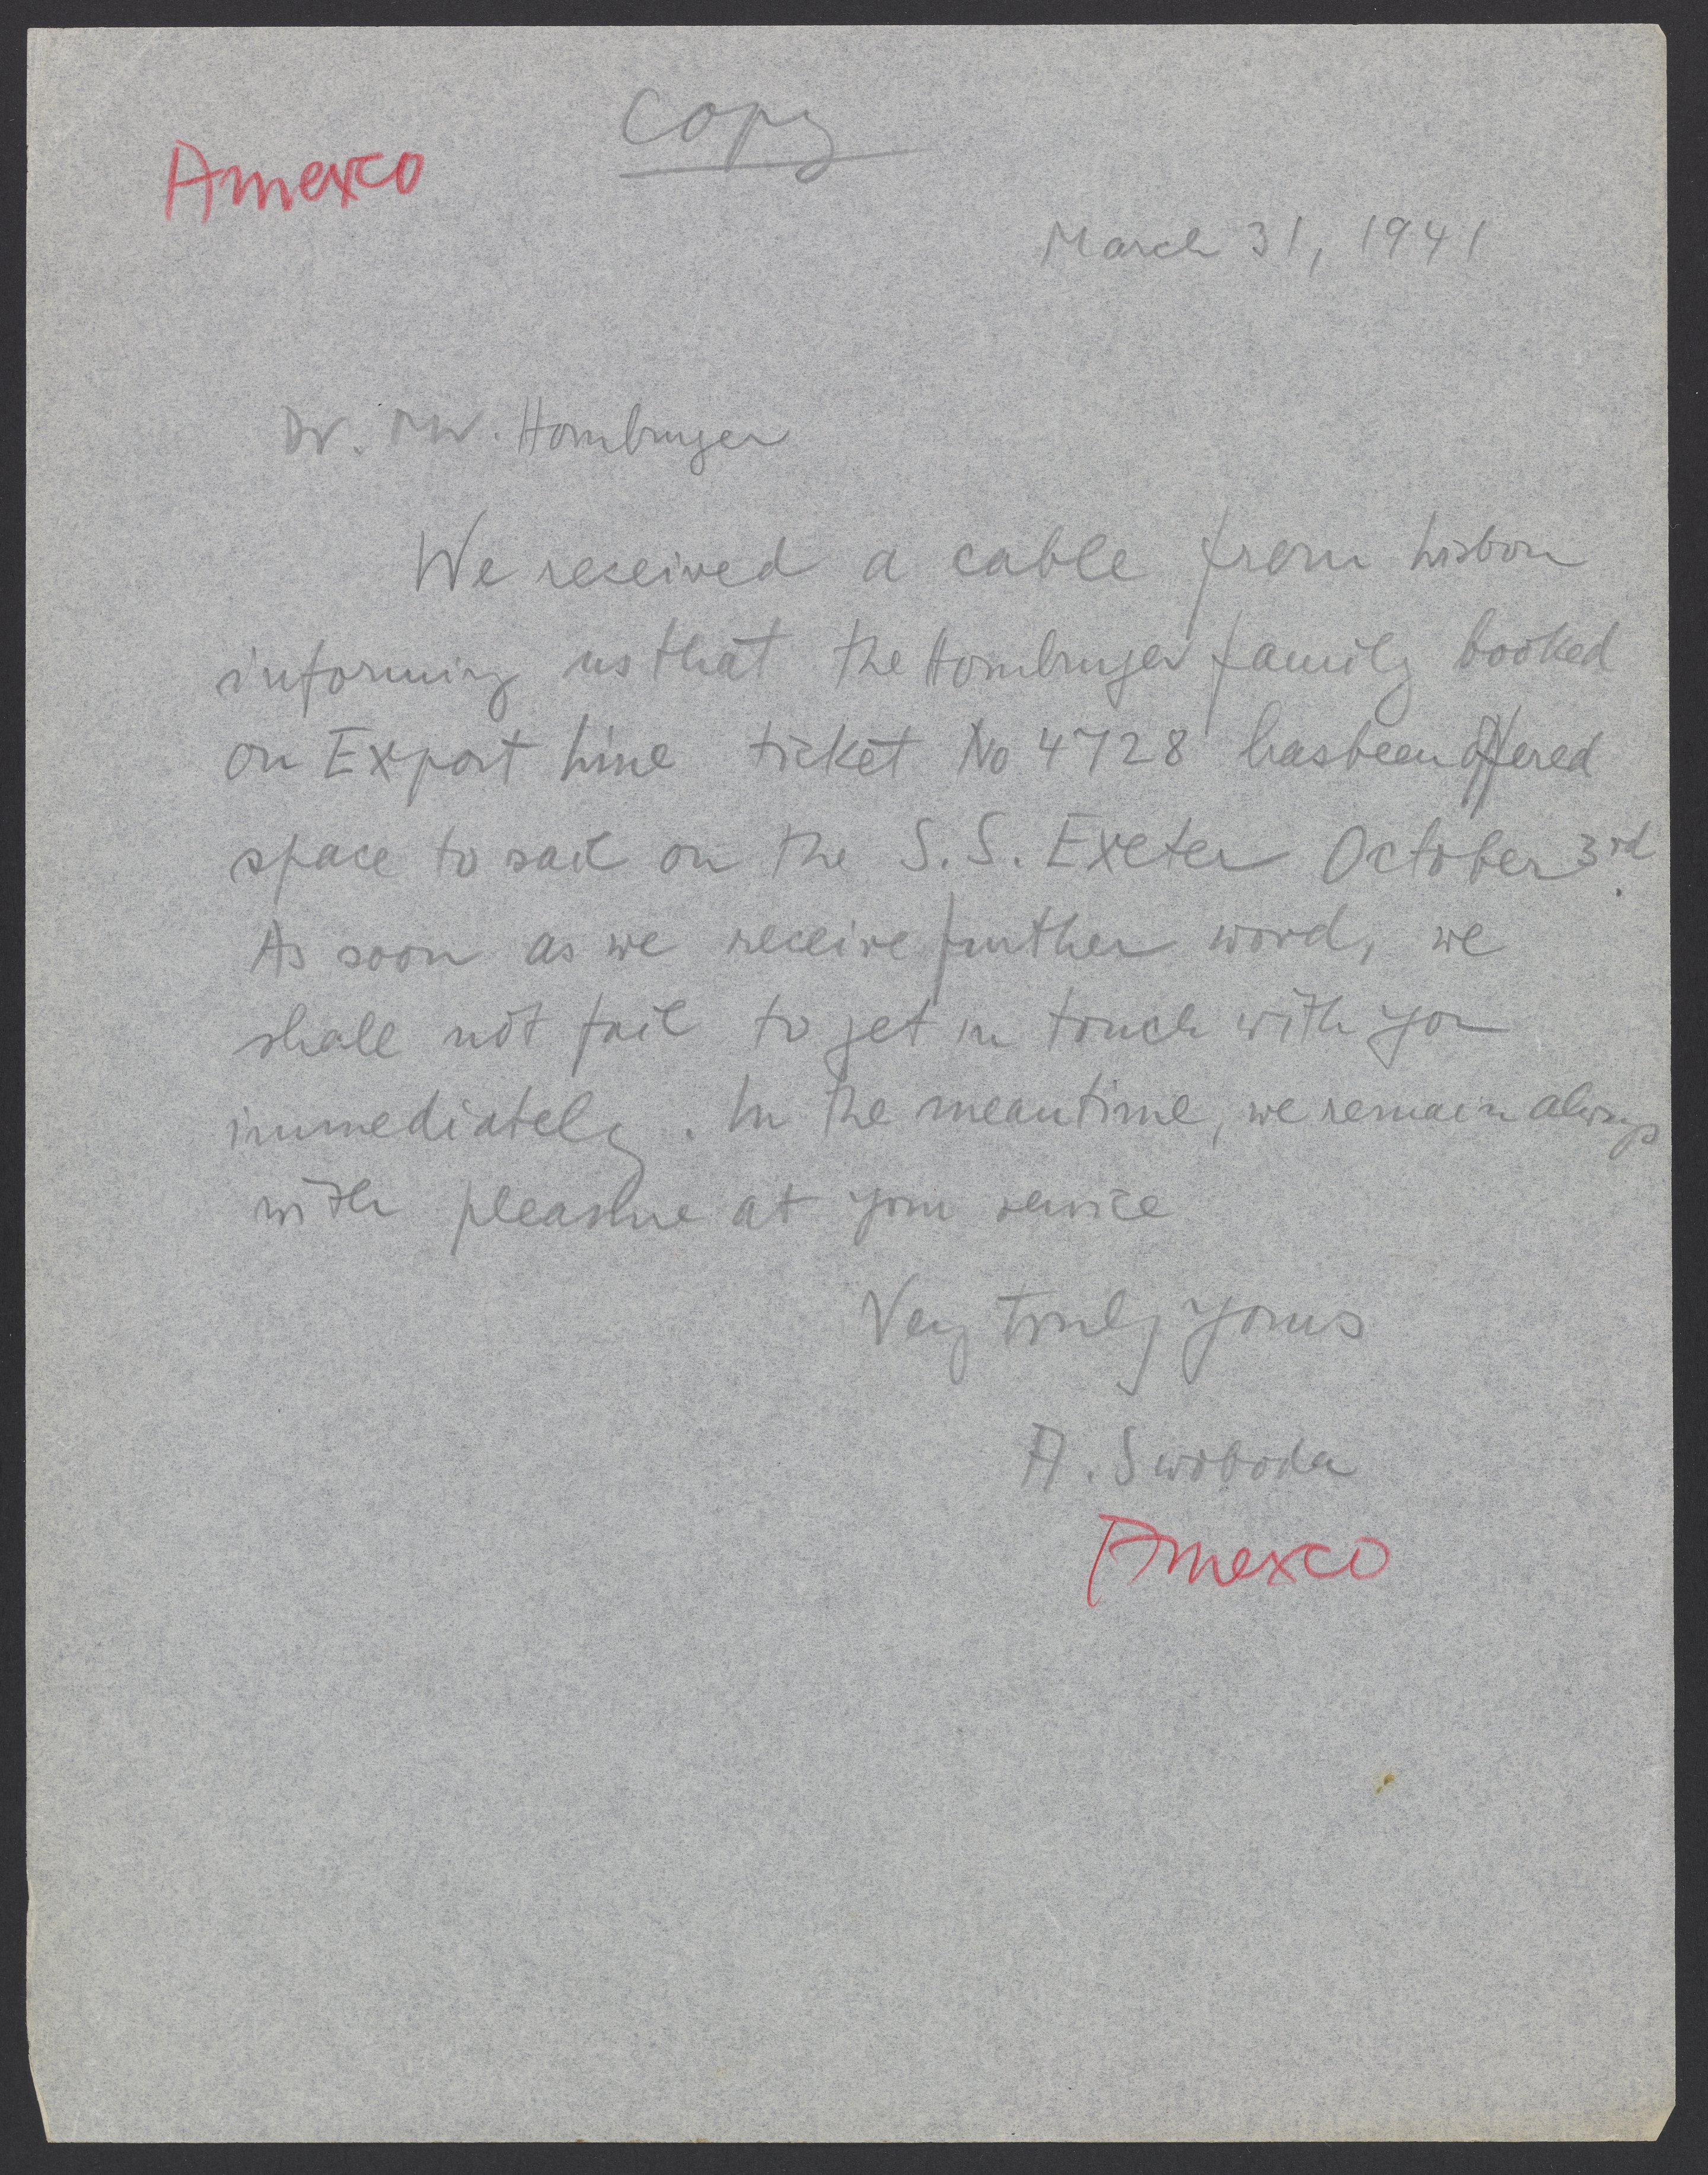 Copy
Amexco
March 31, 1941
Dr. Mr. Homburger
We received a cable from Lisbon
informing us that the Homburger family booked
on Export Line ticket No 4728 has been offered
space to sail on the S.S. Exeter October 3rd.
As soon as we receive further word, we
shall not fail to get in touch with you
immediately. In the meantime, we remain always
with pleasure at your service
Very truly yours
A. Swoboda
Amexco